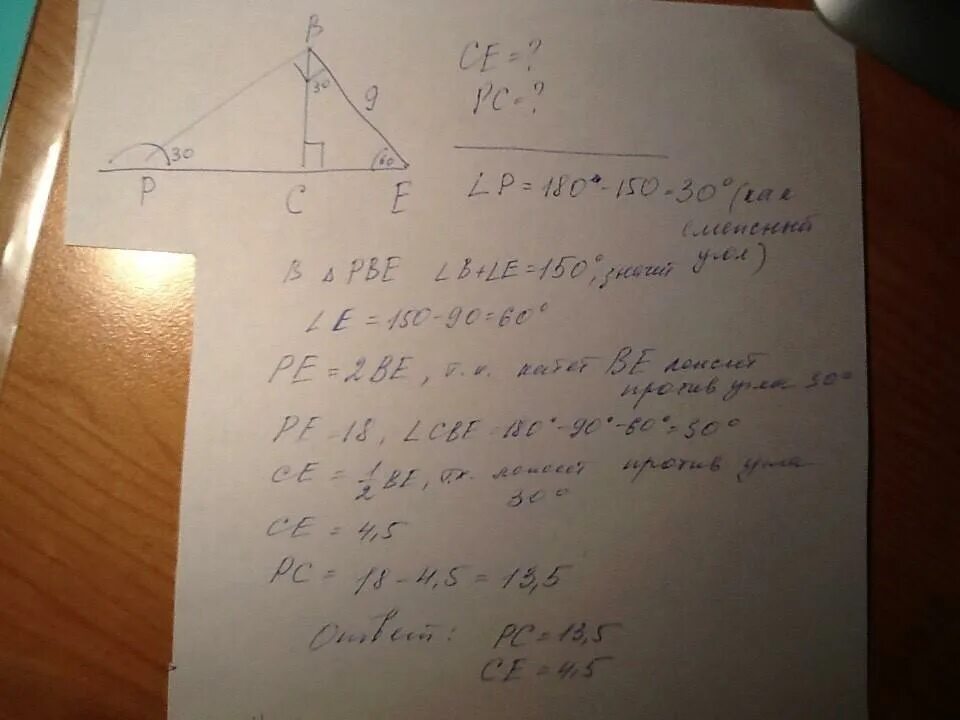 B
30
9
30
60
P
C
E
CE = ?
PC = ?
∠P = 180° - 150 = 30° (как
смежный
угол)
В △ PBE ∠B + ∠E = 150°, значит
∠E = 150 - 90 = 60°
PE = 2BE, т.к. катет BE лежит
против угла 30°
PE = 18, ∠CBE = 180° - 90° - 60° = 30°
CE = 1/2 BE, т.к. лежит против угла
30°
CE = 4,5
PC = 18 - 4,5 = 13,5
Ответ: PC = 13,5
CE = 4,5